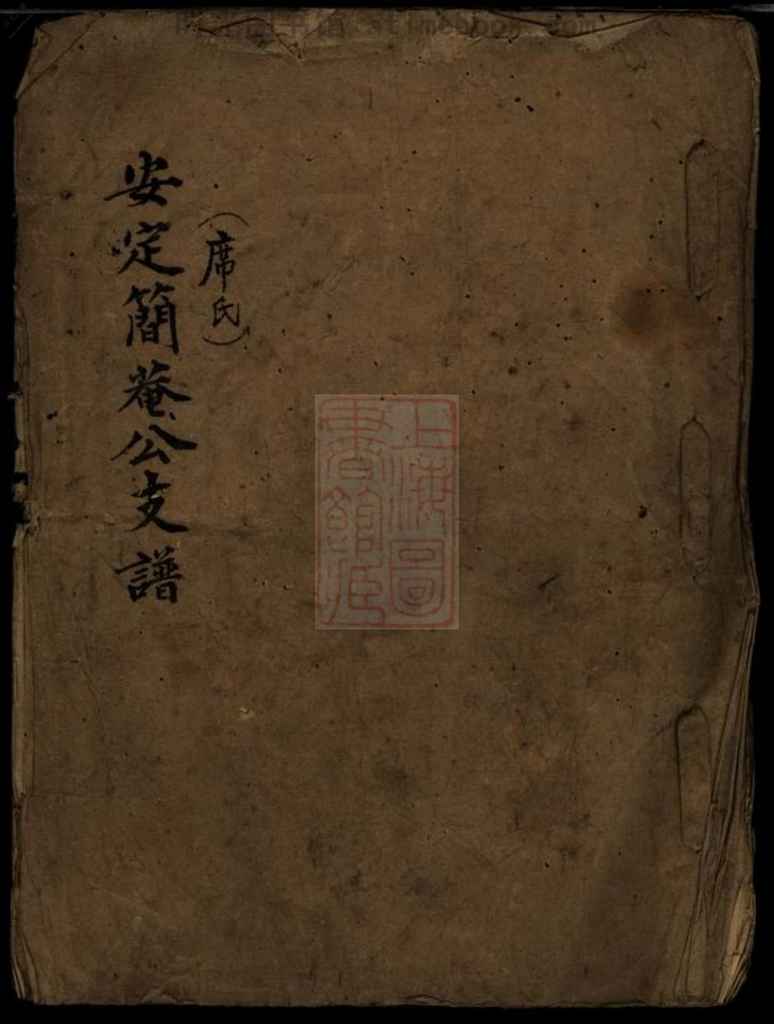 (席氏)
安定簡菴公支譜
上海圖
書館臧